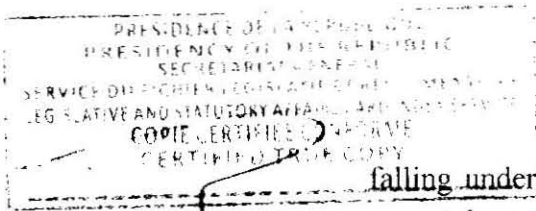 PRESIDENCE DE LA REPUBLIQUE
PRESIDENCY OF THE REPUBLIC
SECRETARIAT GENERAL
SERVICE DU FICHIER
LEGISLATIVE AND STATUTORY AFFAIRS CARD INDEX SERVICE
COPIE CERTIFIEE CONFORME
CERTIFIED TRUE COPY
falling under